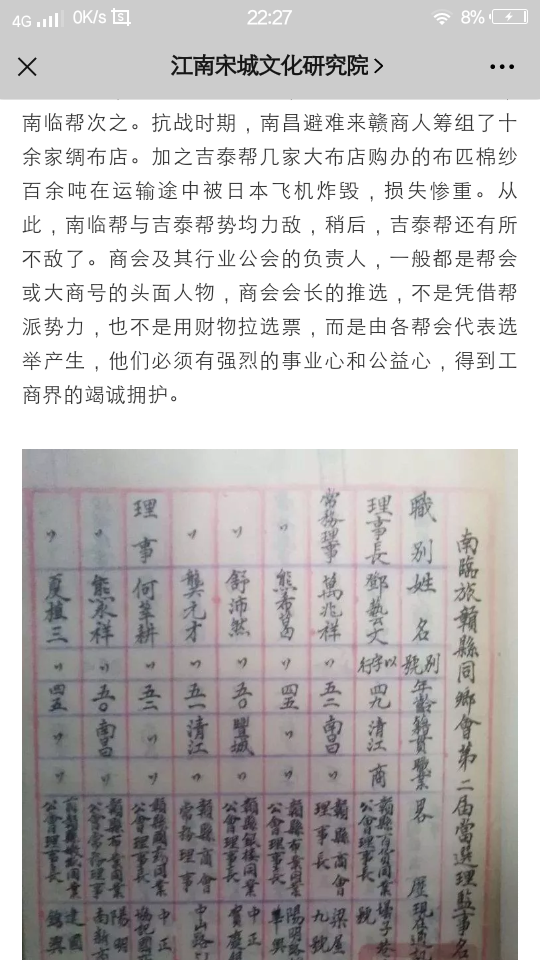 4G 0K/s 22:27 8%
江南宋城文化研究院
南临帮次之。抗战时期，南昌避难来赣商人筹组了十
余家绸布店。加之吉泰帮几家大布店购办的布匹棉纱
百余吨在运输途中被日本飞机炸毁，损失惨重。从
此，南临帮与吉泰帮势均力敌，稍后，吉泰帮还有所
不敌了。商会及其行业公会的负责人，一般都是帮会
或大商号的头面人物，商会会长的推选，不是凭借帮
派势力，也不是用财物拉选票，而是由各帮会代表选
举产生，他们必须有强烈的事业心和公益心，得到工
商界的竭诚拥护。
南臨旅贛縣同鄉會第二届當選理監事名
職別 姓名 別號 年齡 籍貫 職業 畧歷 現在通訊
理事長 鄧藝文 以字行 四九 清江 商 贛縣百貨同業公會理事長
常務理事 萬兆祥 〃 五二 南昌 〃 贛縣商會理事長 梁屋 九號
〃 熊希葛 〃 四五 〃 〃 贛縣布業同業公會理事長 陽明路
〃 舒沛然 〃 五〇 豐城 〃 贛縣銀樓同業公會理事長 中正
〃 龔元才 〃 五一 清江 〃 贛縣商會常務理事 中山路
理事 何 耕 〃 五二 〃 〃 贛縣國药同業公會理事長 中正
〃 熊永祥 〃 五〇 南昌 〃 贛縣布業同業公會常務理事 陽明
〃 夏植三 〃 四五 〃 〃 同業公會理事長 建國